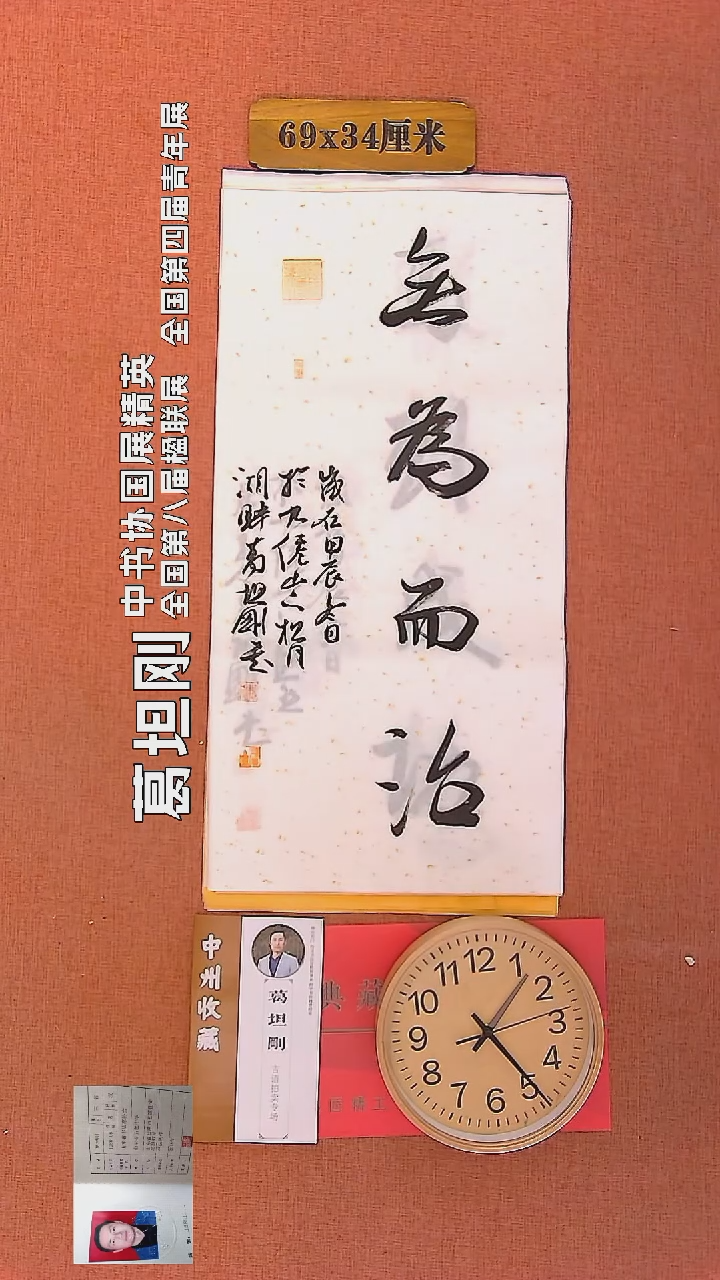 69x34厘米
無為而治
歲在甲辰春日
於九僊山松月
湖畔葛坦剛書
葛坦刚
中书协国展精英
全国第八届楹联展 全国第四届青年展
葛坦剛
典藏
12
1
2
3
4
5
6
7
8
9
10
11